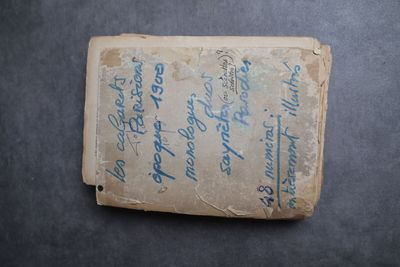 les cabarets
Parisiens
époque 1900
monologues
duos
saynètes (ou
Parodies
48 numéros
entièrement illustrés